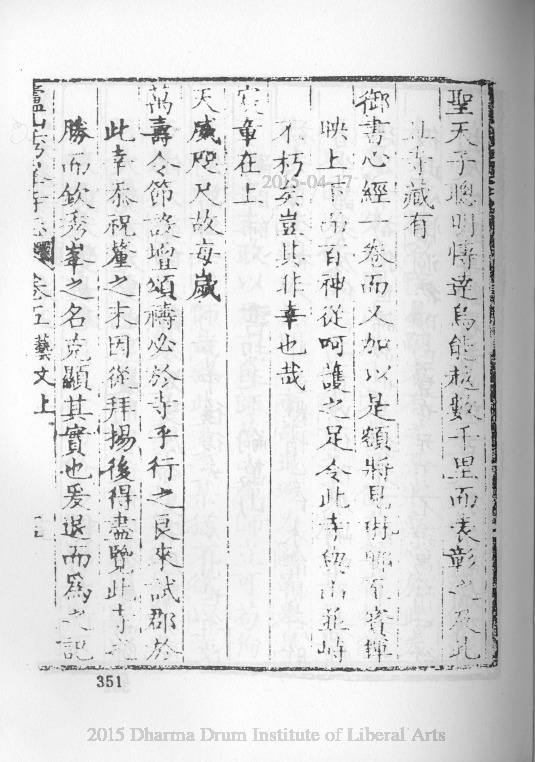 聖天子聰明博達烏能越數千里而表彰之及此
且寺藏有
御書心經一卷而又加以是額將見琳瑯有賓輝
映上而百神從呵護之足令此寺與山並峙
不朽矣豈其非幸也哉
宸章在上
天威咫尺故每歲
萬壽令節設壇頌禱必於寺乎行之良來試郡於
此幸恭祝釐之末因從拜揚後得盡覽此寺之
勝而欽秀峯之名克顯其實也爰退而爲之記
廬山秀峯寺志 卷五 藝文上
351
2015-04-17
2015 Dharma Drum Institute of Liberal Arts